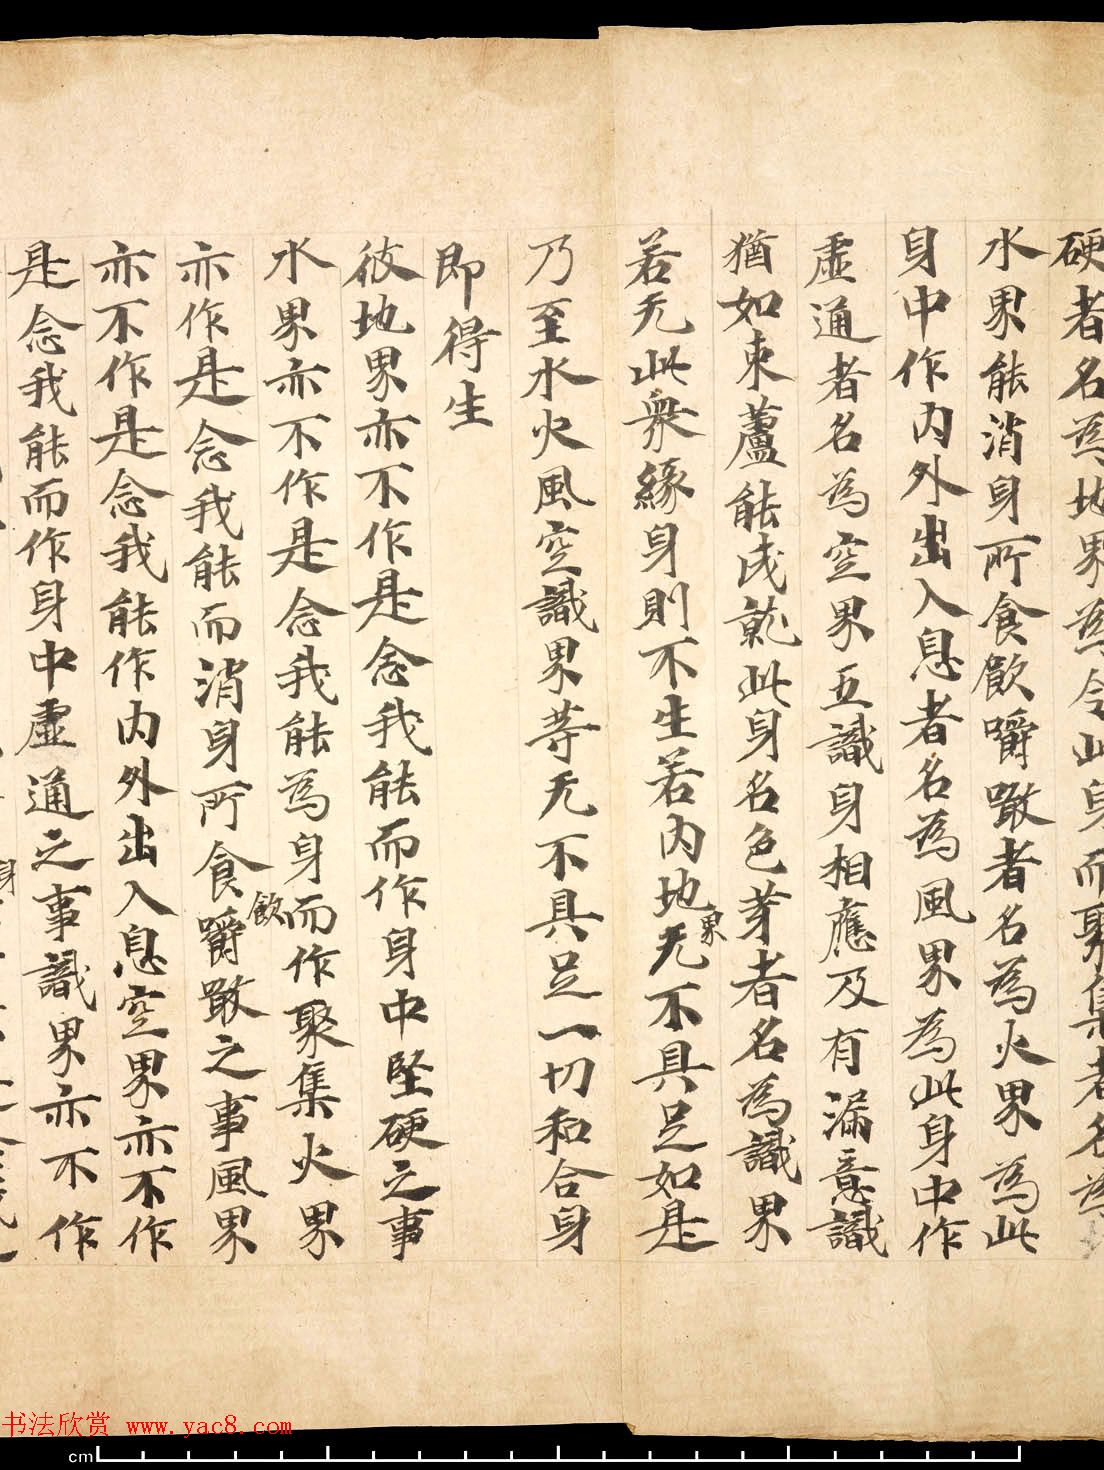 硬者名為地界為令此身而聚集者名為
水界能消身所食飲嚼噉者名為火界為此
身中作內外出入息者名為風界為此身中作
虛通者名為空界五識身相應及有漏意識
猶如束蘆能成就此身名色芽者名為識界
若无此眾緣身則不生若內地界无不具足如是
乃至水火風空識界等无不具足一切和合身
即得生
彼地界亦不作是念我能而作身中堅硬之事
水界亦不作是念我能為身而作聚集火界
亦作是念我能而消身所食飲嚼噉之事風界
亦不作是念我能作內外出入息空界亦不作
是念我能而作身中虛通之事識界亦不作
身
书法欣赏 www.yac8.com
cm